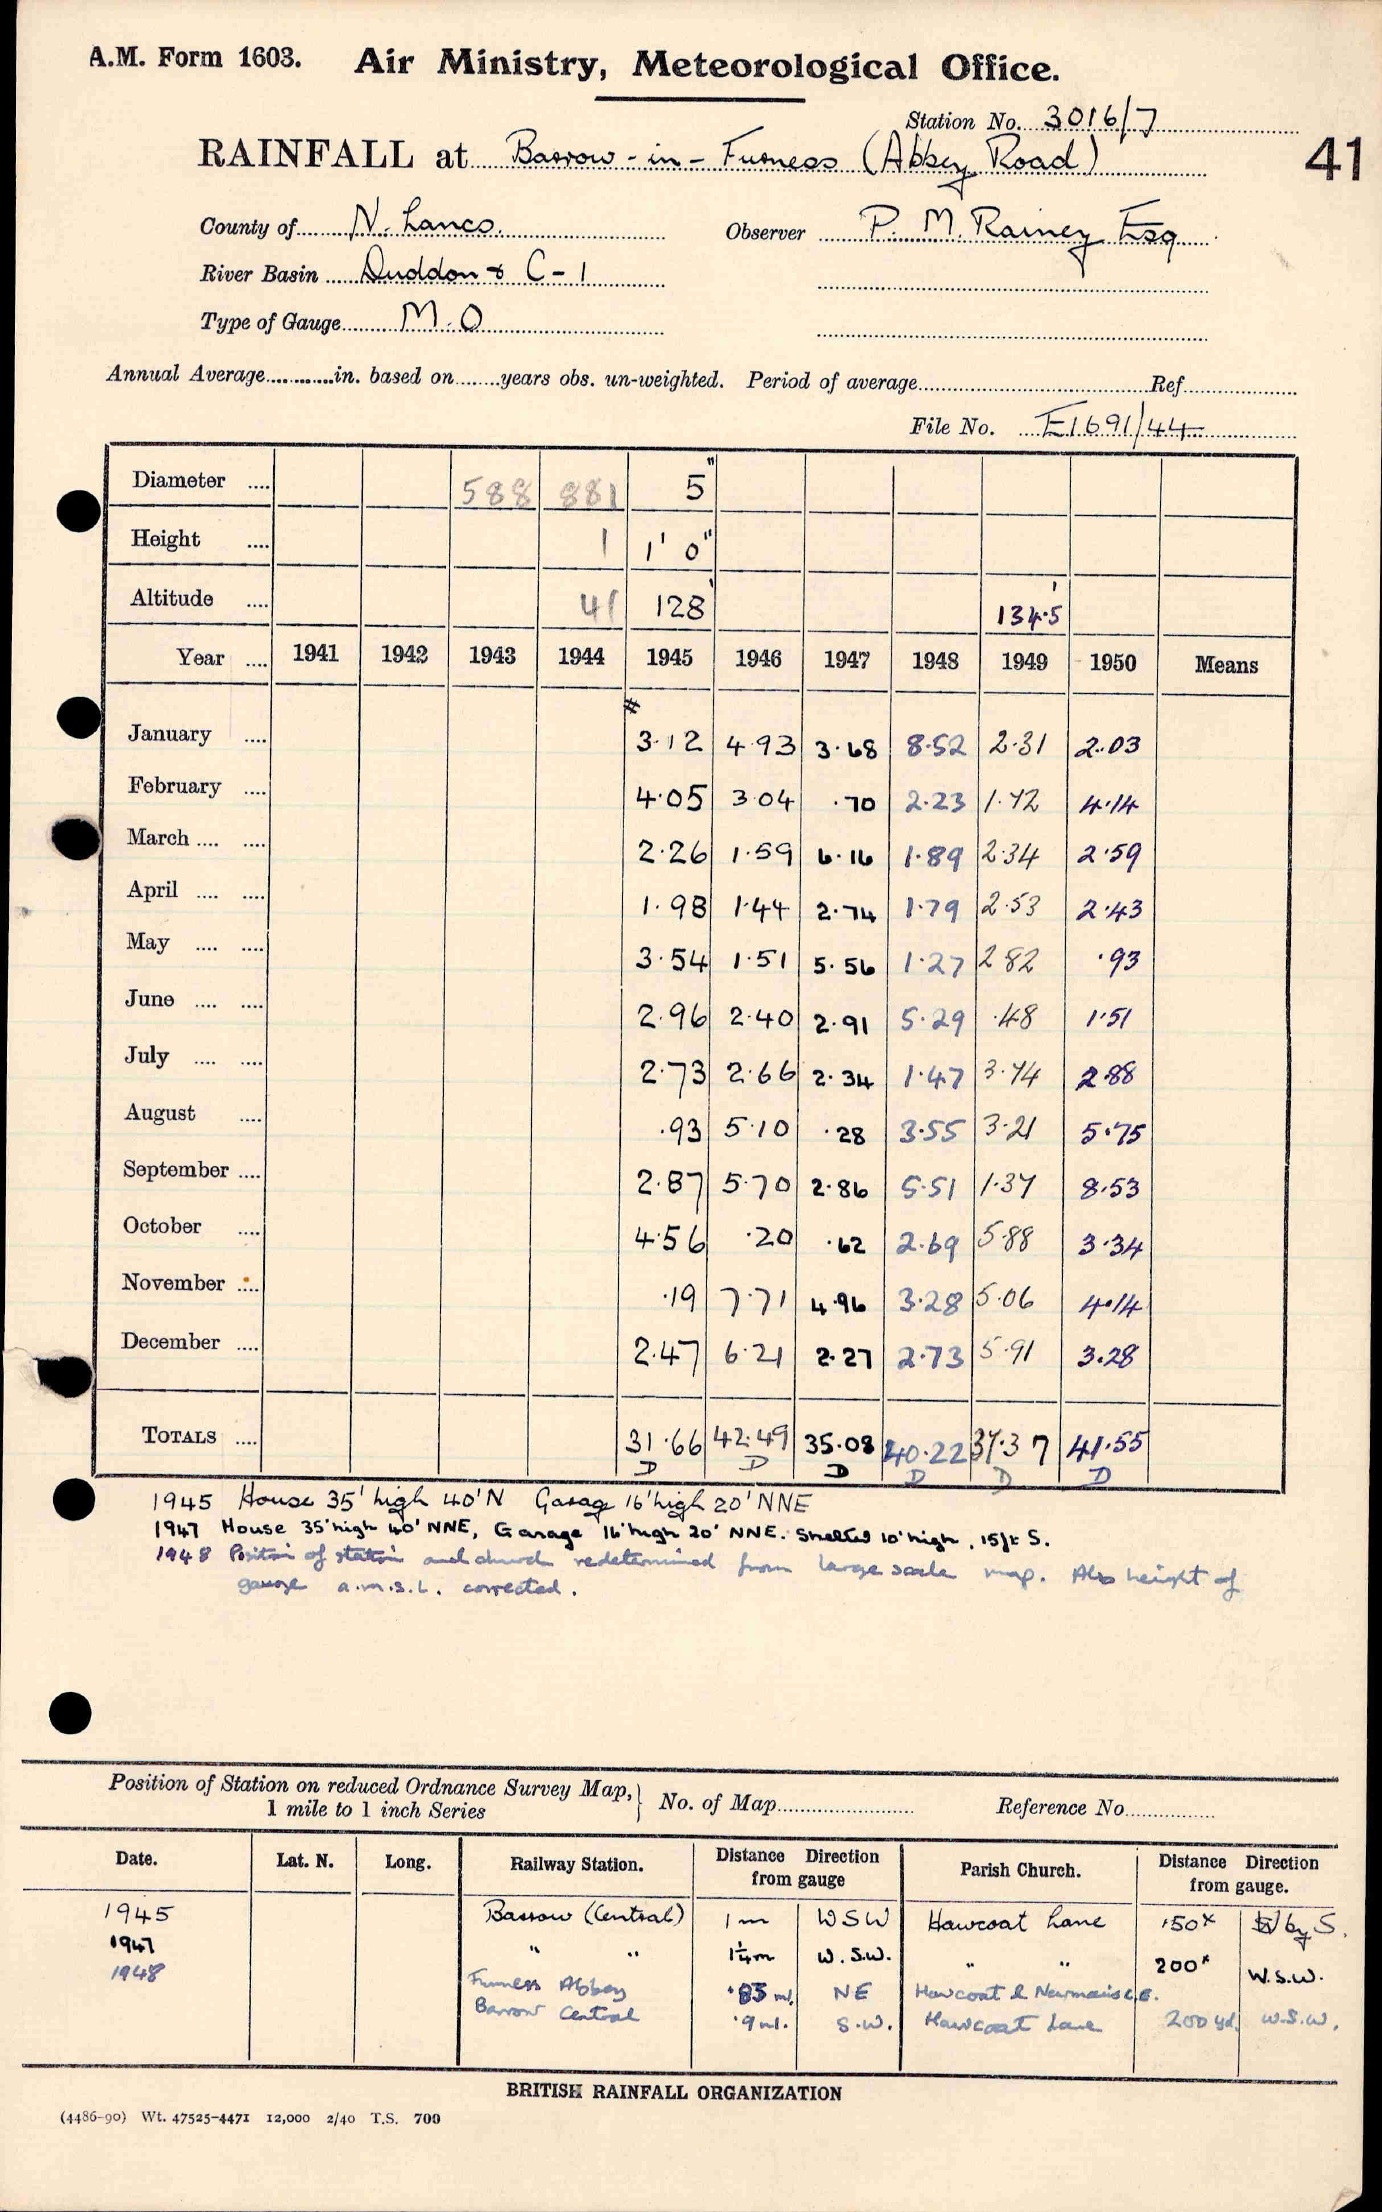 A.M. Form 1603. Air Ministry, Meteorological Office.
Station No. 3016/7
41
RAINFALL at Barrow-in-Furness (Abbey Road)
County of N. Lancs. Observer P. M. Rainey Esq
River Basin Duddon & C-1
Type of Gauge M.O
Annual Average............in. based on........years obs. un-weighted. Period of average........ Ref........
File No. E1691/44
Diameter .... 588 881 5"
Height .... 1 1' 0"
Altitude .... 41 128' 134.5'
Year .... 1941 1942 1943 1944 1945 1946 1947 1948 1949 1950 Means
#
January .... 3.12 4.93 3.68 8.52 2.31 2.03
February .... 4.05 3.04 .70 2.23 1.72 4.14
March .... .... 2.26 1.59 6.16 1.89 2.34 2.59
April .... .... 1.98 1.44 2.74 1.79 2.53 2.43
May .... .... 3.54 1.51 5.56 1.27 2.82 .93
June .... .... 2.96 2.40 2.91 5.29 .48 1.51
July .... .... 2.73 2.66 2.34 1.47 3.74 2.88
August .... .93 5.10 .28 3.55 3.21 5.75
September .... 2.87 5.70 2.86 5.51 1.37 8.53
October .... 4.56 .20 .62 2.69 5.88 3.34
November .... .19 7.71 4.96 3.28 5.06 4.14
December .... 2.47 6.21 2.27 2.73 5.91 3.28
TOTALS .... 31.66 42.49 35.08 40.22 37.37 41.55
D D D D D D
1945 House 35' high 40' N Garage 16' high 20' NNE
1947 House 35' high 40' NNE, Garage 16' high 20' NNE. Shelter 10' high, 15ft S.
1948 Position of station and church redetermined from large scale map. Also height of
gauge a.m.s.l. corrected.
Position of Station on reduced Ordnance Survey Map, } No. of Map........ Reference No........
1 mile to 1 inch Series
Date. Lat. N. Long. Railway Station. Distance Direction from gauge Parish Church. Distance Direction from gauge.
1945 Barrow (Central) 1 m WSW Hawcoat Lane 150x W by S.
1947 " " 1¼m W.S.W. " " 200x W.S.W.
1948 Furness Abbey .85 ml. NE Hawcoat &
Barrow Central .9 ml. S.W. Hawcoat Lane 200 yd. W.S.W.
BRITISH RAINFALL ORGANIZATION
(4486-90) Wt. 47525-4471 12,000 2/40 T.S. 700